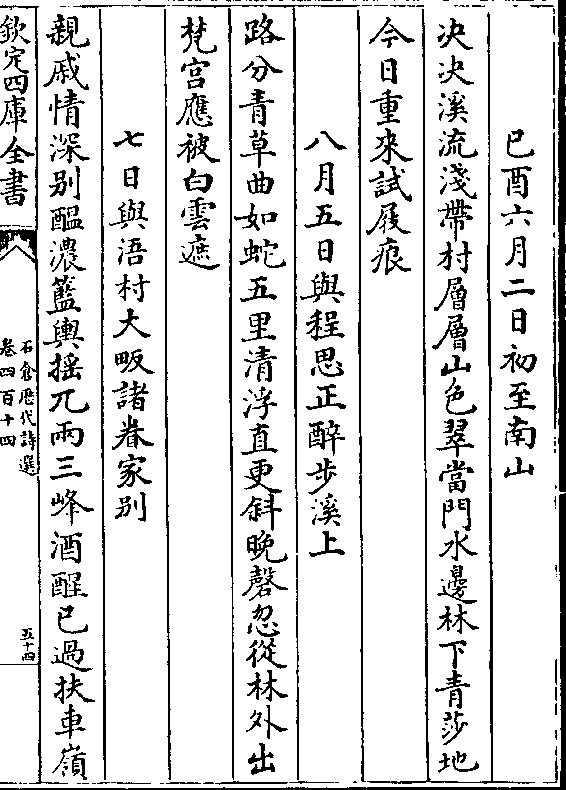 己酉六月二日初至南山
決決溪流淺帶村層層山色翠當門水邊林下青莎地
今日重來試屐痕
八月五日與程思正醉步溪上
路分青草曲如蛇五里清浮直更斜晚磬忽從林外出
梵宮應被白雲遮
七日與浯村大畈諸眷家別
親戚情深別醞濃籃輿搖兀兩三峰酒醒已過扶車嶺
欽定四庫全書
石倉歷代詩選
卷四百十四
五十四